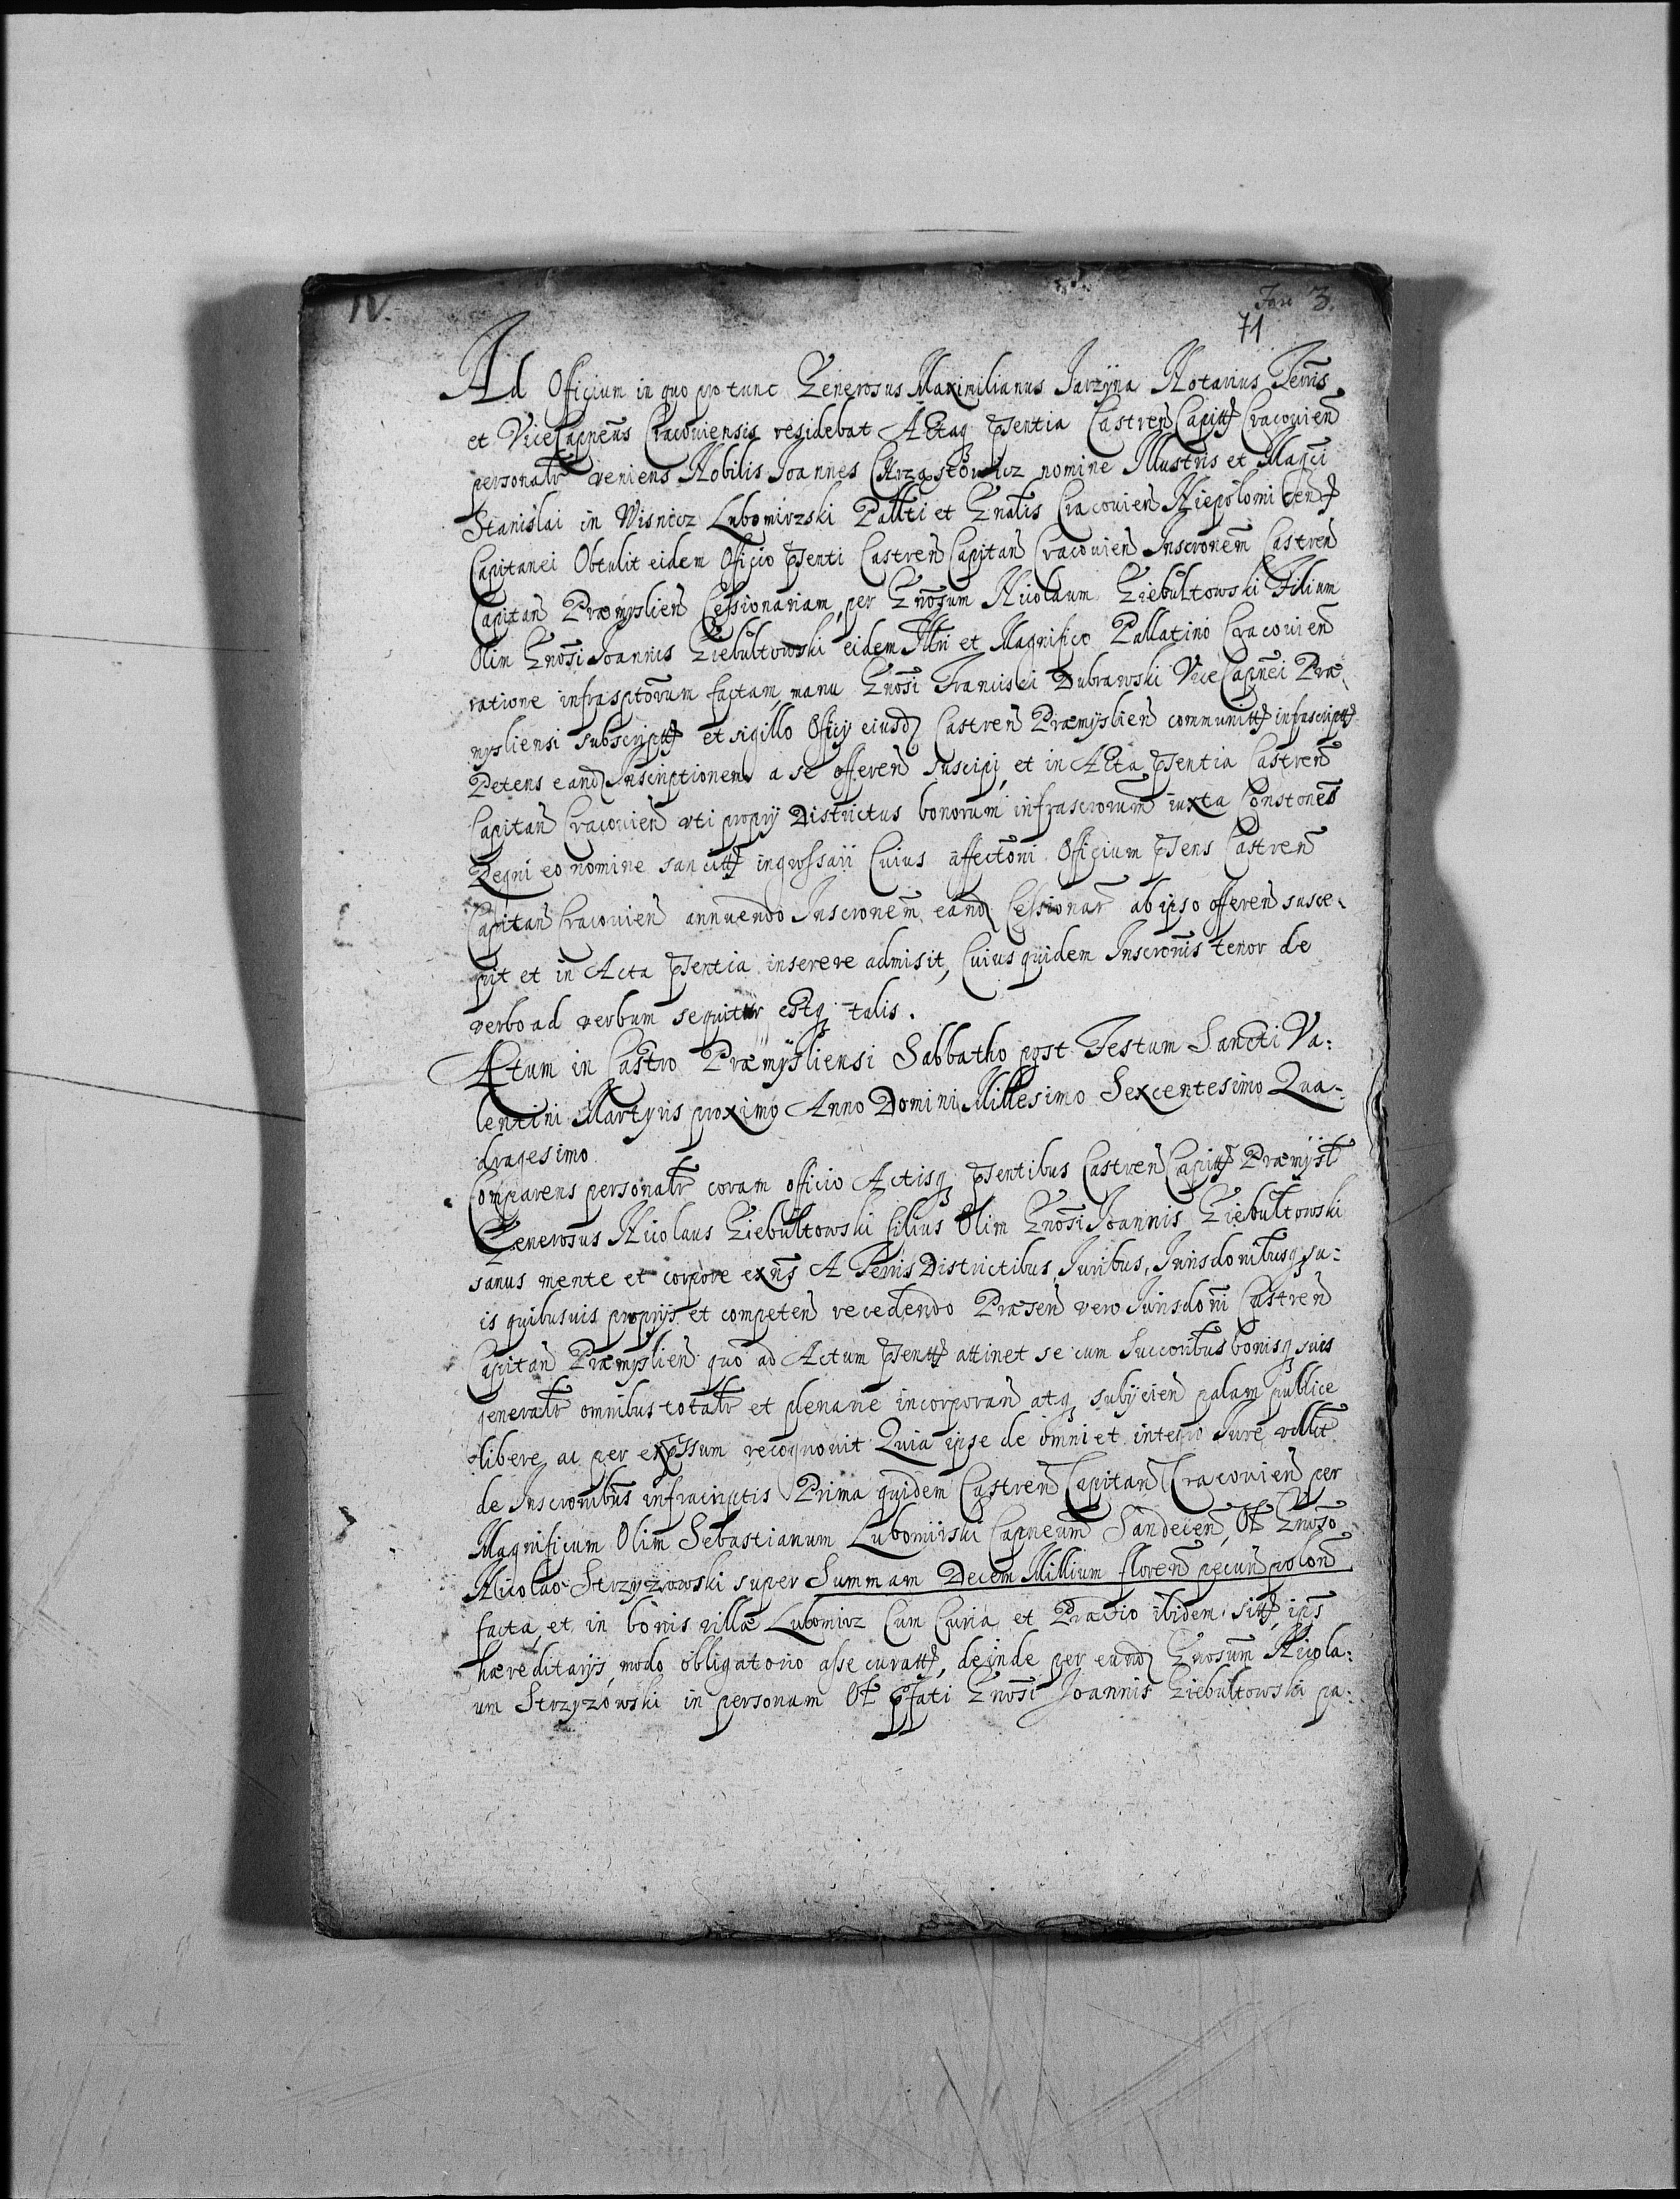 IV.
3.
71
Ad Officium in quo pro tunc Generosus Maximilianus Jarzyna Notarius Terris
et ViceCapneus Cracoviensis residebat Actaq pñtia Castreñ Capittt Cracovień
personalr veniens Nobilis Joannes Chrząstowicz nomine Illustris et Magci
Stanislai in Wisnicz Lubomirzski Pallti et Gnalis Cracovień Niepolomiceñ
Capitanei Obtulit eidem Officio pñti Castreñ Capitañ Cracovień Inscronem Castreñ
Capitañ Præmyslień Cessionariam per Gnosum Nicolaum Ziebultowski Filium
Olim Gnosi Joannis Ziebultowski eidem Illri et Magnifico Pallatino Cracovień
ratione infrasptorum factam, manu Gnosi Francisci Dubrawski ViceCapnei Præ
mysliensi subscriptt et sigillo Officy eiusd Castreñ Præmyslień communitt infrascriptt
Petens eand Inscriptionem a se offereñ suscipi, et in Acta pñtia Castreñ
Capitañ Cracovień uti proprÿ Districtus bonorum infrascrorum iuxta Constones
Regni eo nomine sancitt ingrossari Cuius affectoni Officium pñs Castreñ
Capitañ Cracovień annuendo Inscronem eand Cessionar ab ipso offereñ susce
pit et in Acta pñtia inserere admisit, Cuius quidem Inscronis tenor de
verbo ad verbum sequitur estq talis.
Actum in Castro Præmysliensi Sabbatho post Festum Sancti Va:
lentini Martyris proximo Anno Domini Millesimo Sexcentesimo Qua:
dragesimo
Comparens personalr coram officio Actisq pñtibus Castreñ Capittt Præmysl
Generosus Nicolaus Ziebultowski filius Olim Gnosi Joannis Ziebultowski
sanus mente et corpore exñs A Terris Districtibus, Juribus, Jurisdonibusq su:
is quibusuis proprijs et competeñ recedendo Præseñ vero Jurisdoni Castreñ
Capitañ Præmyslień quo ad Actum pñtt attinet se cum Succoribus bonisq suis
generalr omnibus totalr et plenarie incorporañ atq subijcień palam publice
libere ac per expssum recognovit Quia ipse de omni et integro Jure
de Inscronibus infrascriptis Prima quidem Castreñ Capitañ Cracovień per
Magnificum Olim Sebastianum Lubomirski Capneum Sandeceñ, Ol Gnoso
Nicolao Strzyzowski super Summam Decem Millium floreñ pecuñ poloñ
facta, et in bonis villæ Lubomirz Cum Curia et Prædio ibidem sitt, ips
hæreditarijs, modo obligatorio assecuratt, deinde per eund Gnosum Nicola:
um Strzyzowski in personam Ol pfati Gnosi Joannis Ziebultowski pa: